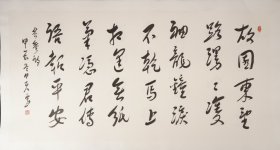 故園東望
路漫漫雙
袖龍鐘淚
不乾馬上
相逢無紙
筆憑君傳
語報平安
岑參詩